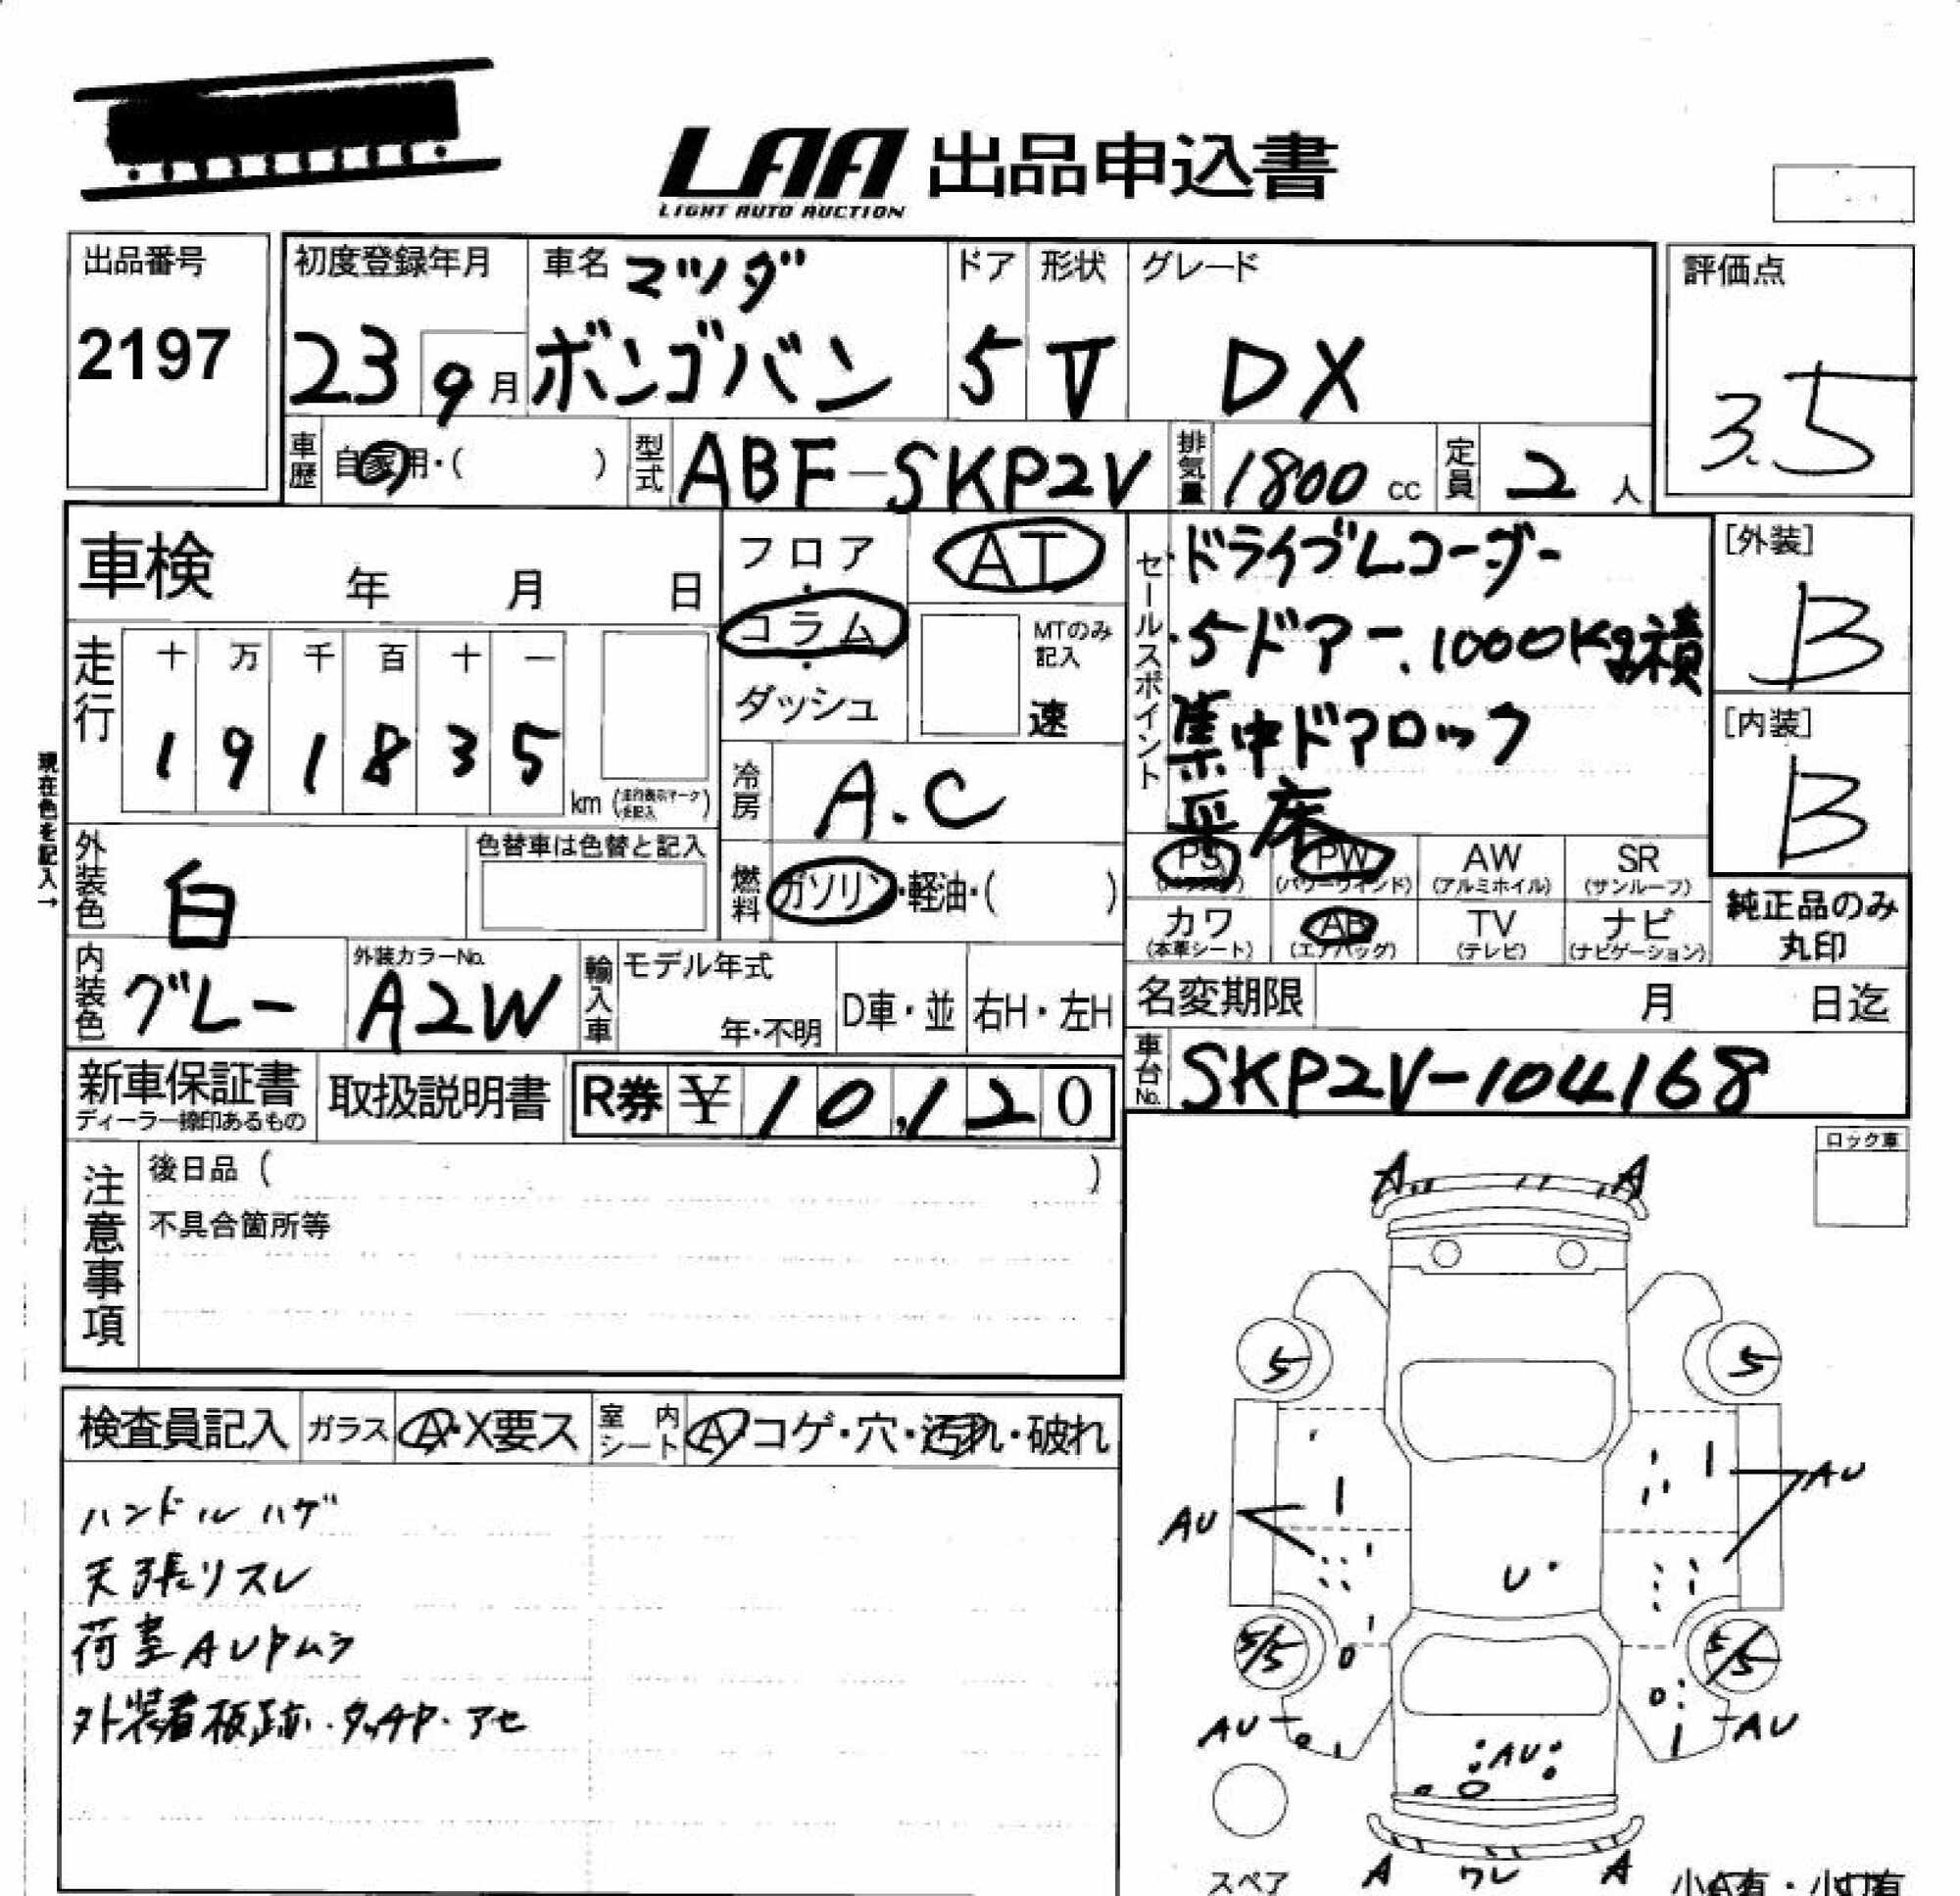 LAA 出品申込書
LIGHT AUTO AUCTION
出品番号
2197
初度登録年月
23 9月
車名 マツダ
ボンゴバン
ドア
5
形状
V
グレード
DX
評価点
3.5
車歴 自家用・( )
型式 ABF-SKP2V
排気量 1800 cc
定員 2 人
車検 年 月 日
フロア・コラム・ダッシュ
AT
MTのみ記入
速
走行
十 万 千 百 十 一
1 9 1 8 3 5
km (走行表示マーク記入)
現在色を記入→
冷房 A.C
燃料 ガソリン・軽油・( )
外装色 白
色替車は色替と記入
内装色 グレー
外装カラーNo. A2W
輸入車 モデル年式
年・不明
D車・並
右H・左H
セールスポイント
・ドライブレコーダー
・5ドアー.1000Kg積
集中ドアロック
平床
[外装]
B
[内装]
B
PS PW(パワーウィンド) AW(アルミホイル) SR(サンルーフ)
カワ(本革シート) AB(エアバッグ) TV(テレビ) ナビ(ナビゲーション)
純正品のみ
丸印
名変期限 月 日迄
車台No. SKP2V-104168
新車保証書
ディーラー捺印あるもの
取扱説明書
R券 ¥10,120
注意事項
後日品 ( )
不具合箇所等
ロック車
検査員記入
ガラス A・X要ス
室内シート A コゲ・穴・汚れ・破れ
ハンドルハゲ
天張リスレ
荷室AUPムラ
外装看板跡・タッチP・アセ
A A
5 5
AU AU
U
5/5 5/5
AU AU
AU
A ワレ A
スペア